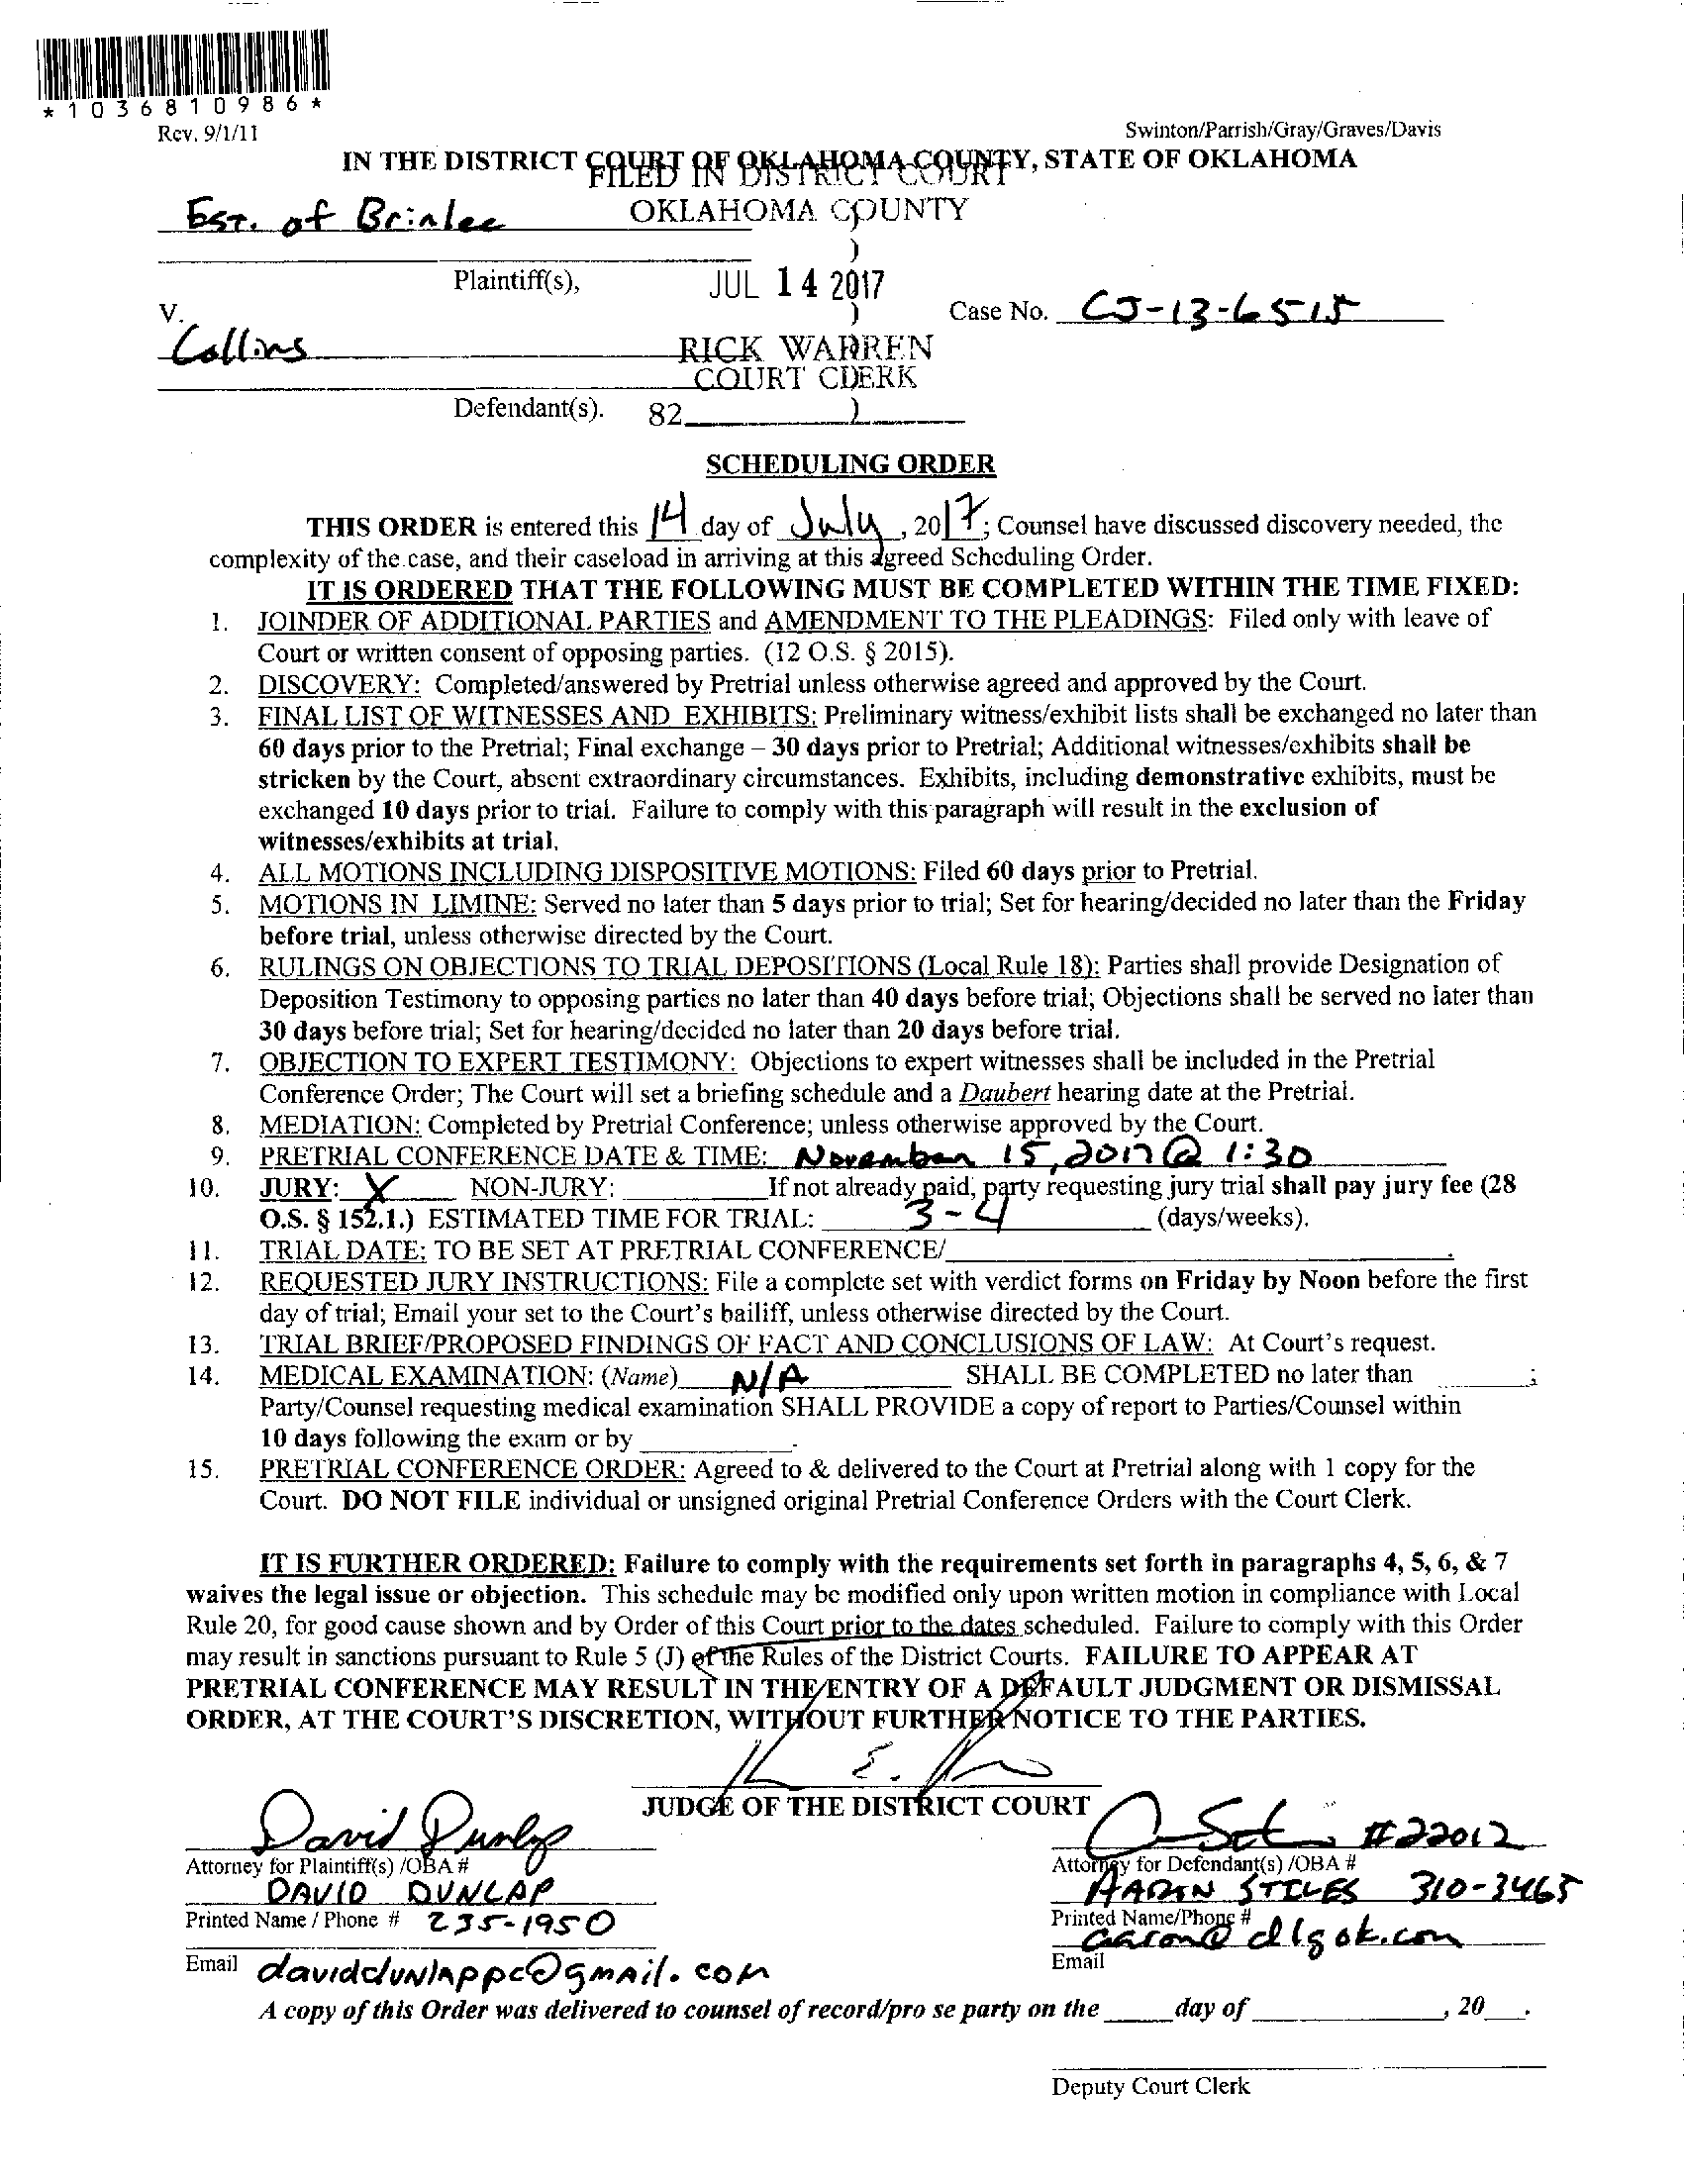 *1036810986*
Rev. 9/1/11
Swinton/Parrish/Gray/Graves/Davis
IN THE DISTRICT COURT OF OKLAHOMA COUNTY, STATE OF OKLAHOMA
FILED IN DISTRICT COURT
OKLAHOMA COUNTY
Est. of Brinlee
)
)
Plaintiff(s),
JUL 14 2017
v.
)
Case No. CJ-13-6515
Collins
RICK WARREN
COURT CLERK
Defendant(s).
82
)
SCHEDULING ORDER
THIS ORDER is entered this 14 day of July, 2017; Counsel have discussed discovery needed, the
complexity of the case, and their caseload in arriving at this agreed Scheduling Order.
IT IS ORDERED THAT THE FOLLOWING MUST BE COMPLETED WITHIN THE TIME FIXED:
1. JOINDER OF ADDITIONAL PARTIES and AMENDMENT TO THE PLEADINGS: Filed only with leave of
Court or written consent of opposing parties. (12 O.S. § 2015).
2. DISCOVERY: Completed/answered by Pretrial unless otherwise agreed and approved by the Court.
3. FINAL LIST OF WITNESSES AND EXHIBITS: Preliminary witness/exhibit lists shall be exchanged no later than
60 days prior to the Pretrial; Final exchange – 30 days prior to Pretrial; Additional witnesses/exhibits shall be
stricken by the Court, absent extraordinary circumstances. Exhibits, including demonstrative exhibits, must be
exchanged 10 days prior to trial. Failure to comply with this paragraph will result in the exclusion of
witnesses/exhibits at trial.
4. ALL MOTIONS INCLUDING DISPOSITIVE MOTIONS: Filed 60 days prior to Pretrial.
5. MOTIONS IN LIMINE: Served no later than 5 days prior to trial; Set for hearing/decided no later than the Friday
before trial, unless otherwise directed by the Court.
6. RULINGS ON OBJECTIONS TO TRIAL DEPOSITIONS (Local Rule 18): Parties shall provide Designation of
Deposition Testimony to opposing parties no later than 40 days before trial; Objections shall be served no later than
30 days before trial; Set for hearing/decided no later than 20 days before trial.
7. OBJECTION TO EXPERT TESTIMONY: Objections to expert witnesses shall be included in the Pretrial
Conference Order; The Court will set a briefing schedule and a Daubert hearing date at the Pretrial.
8. MEDIATION: Completed by Pretrial Conference; unless otherwise approved by the Court.
9. PRETRIAL CONFERENCE DATE & TIME: November 15, 2017 @ 1:30
10. JURY: X NON-JURY: If not already paid, party requesting jury trial shall pay jury fee (28
O.S. § 152.1.) ESTIMATED TIME FOR TRIAL: 3-4 (days/weeks).
11. TRIAL DATE: TO BE SET AT PRETRIAL CONFERENCE/ .
12. REQUESTED JURY INSTRUCTIONS: File a complete set with verdict forms on Friday by Noon before the first
day of trial; Email your set to the Court's bailiff, unless otherwise directed by the Court.
13. TRIAL BRIEF/PROPOSED FINDINGS OF FACT AND CONCLUSIONS OF LAW: At Court's request.
14. MEDICAL EXAMINATION: (Name) N/A SHALL BE COMPLETED no later than ;
Party/Counsel requesting medical examination SHALL PROVIDE a copy of report to Parties/Counsel within
10 days following the exam or by .
15. PRETRIAL CONFERENCE ORDER: Agreed to & delivered to the Court at Pretrial along with 1 copy for the
Court. DO NOT FILE individual or unsigned original Pretrial Conference Orders with the Court Clerk.
IT IS FURTHER ORDERED: Failure to comply with the requirements set forth in paragraphs 4, 5, 6, & 7
waives the legal issue or objection. This schedule may be modified only upon written motion in compliance with Local
Rule 20, for good cause shown and by Order of this Court prior to the dates scheduled. Failure to comply with this Order
may result in sanctions pursuant to Rule 5 (J) of the Rules of the District Courts. FAILURE TO APPEAR AT
PRETRIAL CONFERENCE MAY RESULT IN THE ENTRY OF A DEFAULT JUDGMENT OR DISMISSAL
ORDER, AT THE COURT'S DISCRETION, WITHOUT FURTHER NOTICE TO THE PARTIES.
JUDGE OF THE DISTRICT COURT
David Dunlap
#22012
Attorney for Plaintiff(s) /OBA #
Attorney for Defendant(s) /OBA #
DAVID DUNLAP
AARON STILES 310-3465
Printed Name / Phone # 235-1950
Printed Name/Phone #
aaron@dlgok.com
Email daviddunlappc@gmail.com
Email
A copy of this Order was delivered to counsel of record/pro se party on the day of , 20 .
Deputy Court Clerk